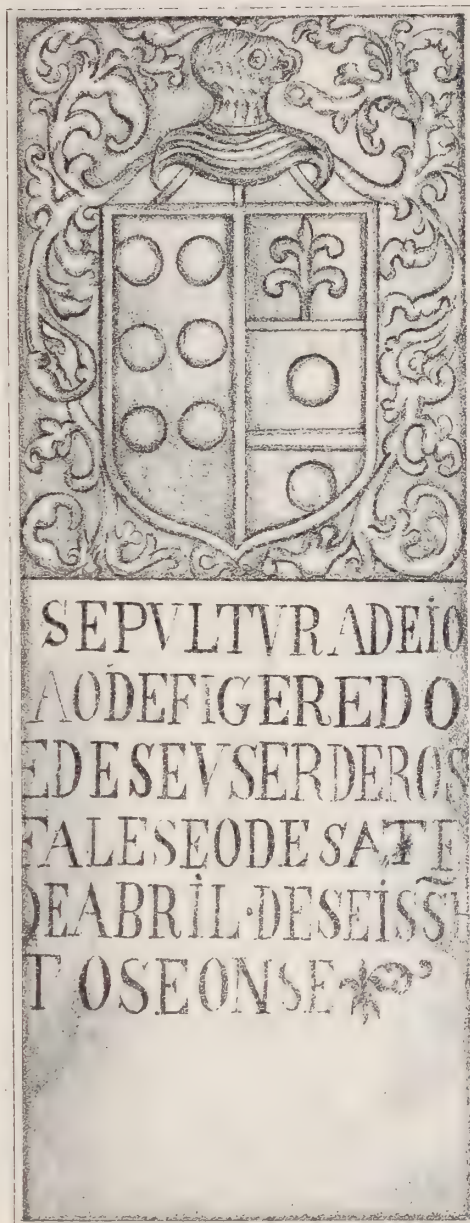 SEPVLTVRADEIO
AODEFIGEREDO
EDESEVSERDEROS
FALESEODESATE
DEABRIL·DESEISS̃E
TOSEONSE